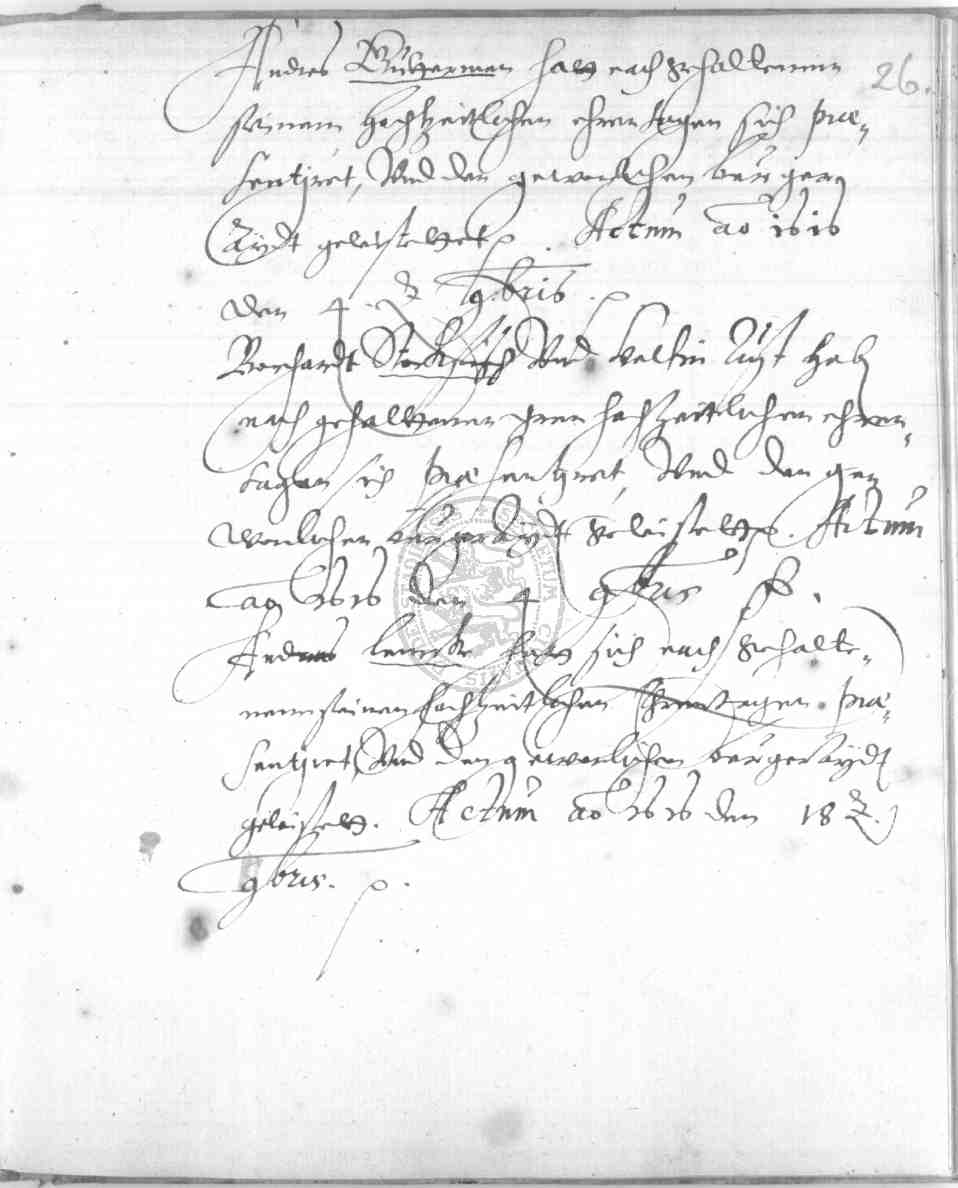 Andres Bütterman hatt nach gehaltenem
26.
seinem hochzeitlichen ehrentagen sich præ-
sentiret, Und den gewonlichen burger
Aydt geleistettet. Actum aō 1616
den 4. 9bris.
Borchardt Stockfisch Und Valtin Aust hab
nach gehalttenen ihren hochzeittlichen ehren-
tagen sich præsentiret, Und den ge-
wonlichen burger Aydt geleistett. Actum
ao 1616 den 4 9bris.
Andreas Lemcke hatt sich nach gehalte-
nem seinen hochzeitlichen Ehrentagen præ-
sentiret, Und den gewonlichen burger aydt
geleistett. Actum aō 1616 den 18
9bris.